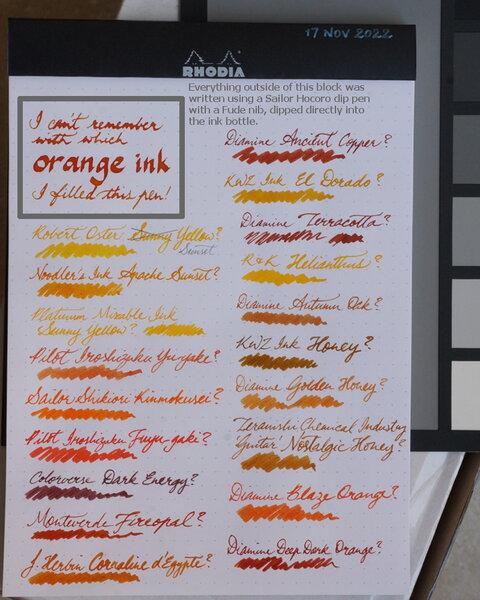 17 NOV 2022
RHODIA
Everything outside of this block was
written using a Sailor Hocoro dip pen
with a Fude nib, dipped directly into
the ink bottle.
I can't remember
with which
orange ink
I filled this pen!
Robert Oster Sunny Yellow?
Sunset
Noodler's Ink Apache Sunset?
Platinum Mixable Ink
Sunny Yellow?
Pilot Iroshizuku Yu-yake?
Sailor Shikiori Kinmokusei?
Pilot Iroshizuku Fuyu-gaki?
Colorverse Dark Energy?
Monteverde Fireopal?
J. Herbin Corraline d'Egypte?
Diamine Ancient Copper?
KWZ Ink El Dorado?
Diamine Terracotta?
R&K Helianthus?
Diamine Autumn Oak?
KWZ Ink Honey?
Diamine Golden Honey?
Teranishi Chemical Industry
Guitar Nostalgic Honey?
Diamine Blaze Orange?
Diamine Deep Dark Orange?